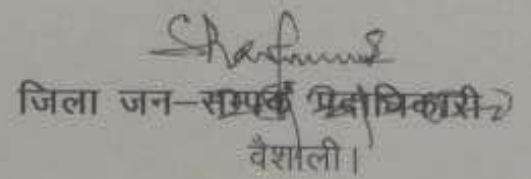 जिला जन-सम्पर्क पदाधिकारी
वैशाली।